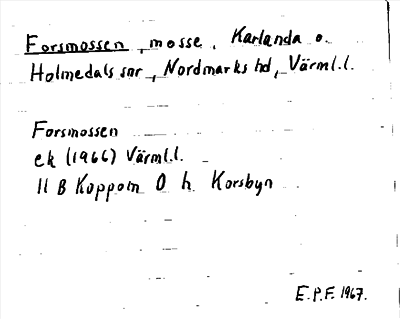 Forsmossen, mosse, Karlanda o.
Holmedals snr, Nordmarks hd, Värml.l.
Forsmossen
ek (1966) Värml.l.
11 B Koppom 0 h Korsbyn
E.P.F. 1967.